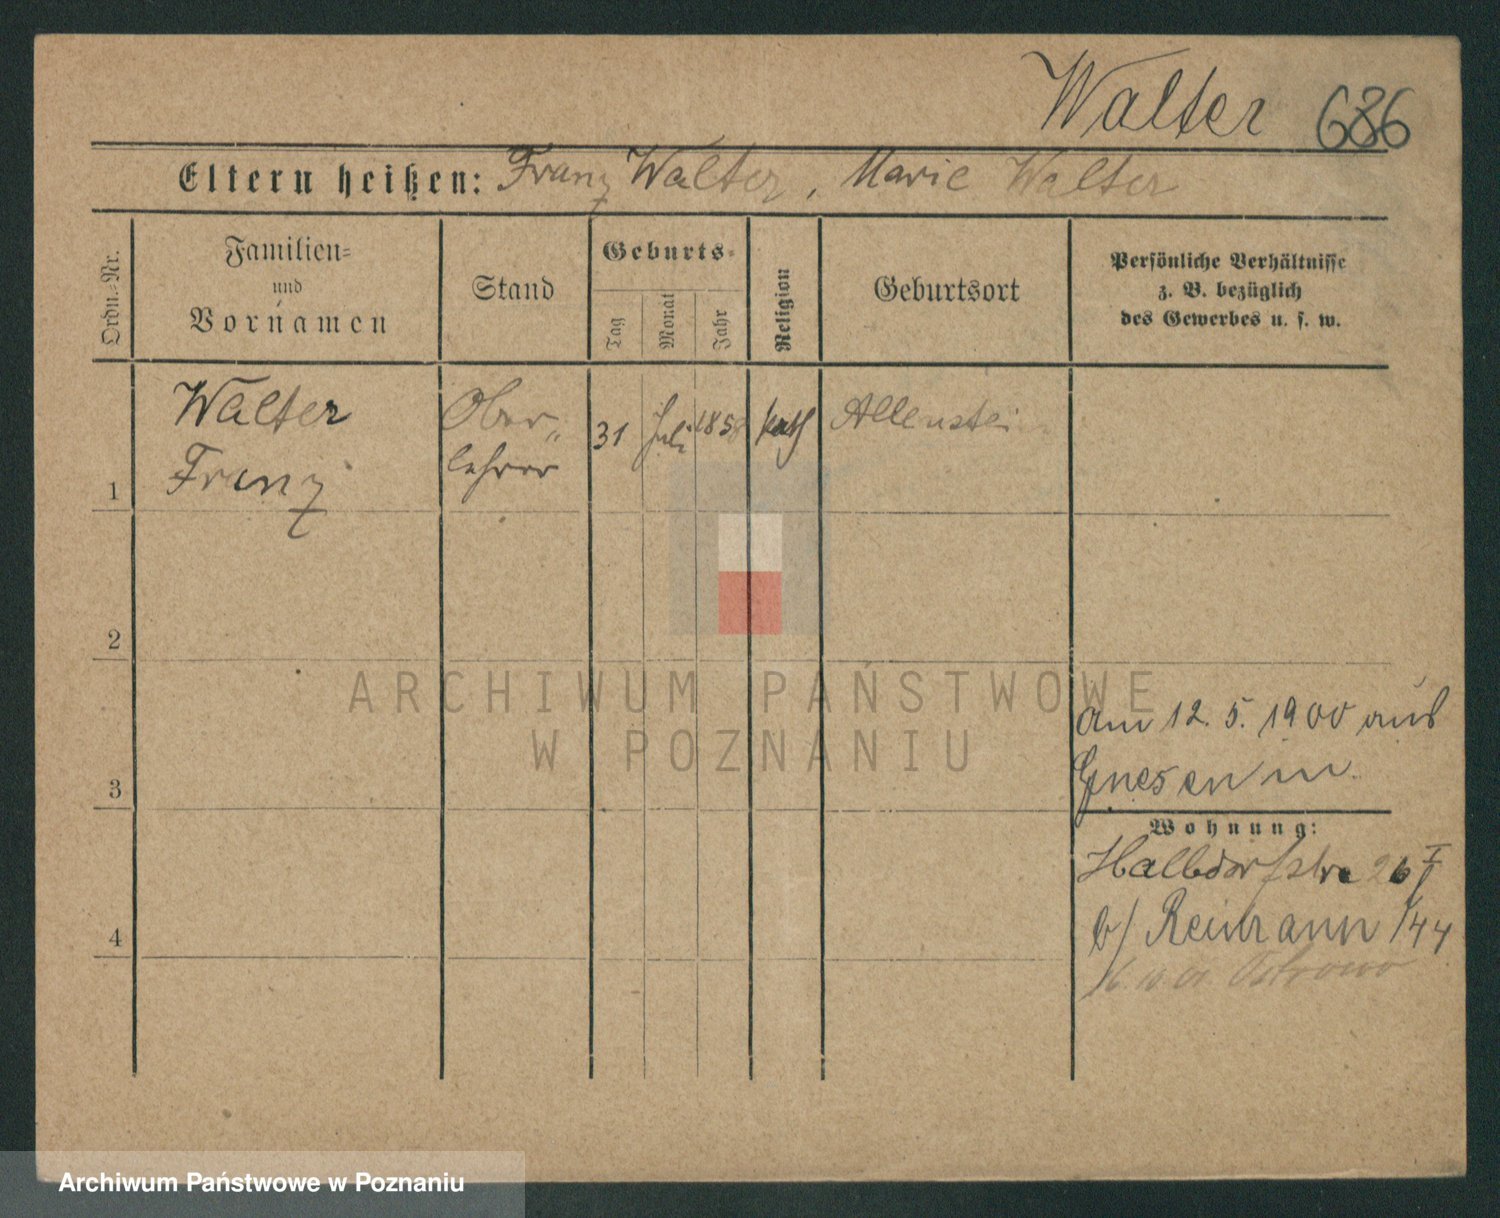 Walter 686
Eltern heißen: Franz Walter, Marie Walter
Ordn.-Nr.
Familien-
und
Vornamen
Stand
Geburts-
Tag
Monat
Jahr
Religion
Geburtsort
Persönliche Verhältnisse
z. B. bezüglich
des Gewerbes u. s. w.
1
Walter
Franz
Ober-
lehrer
31
Juli
1858
kath
Allenstein
2
3
4
am 12. 5. 1900 aus
Gnesen
Wohnung:
Halbdorfstre 26 I
b/ Reimann
Ostrowo
ARCHIWUM PAŃSTWOWE
W POZNANIU
Archiwum Państwowe w Poznaniu